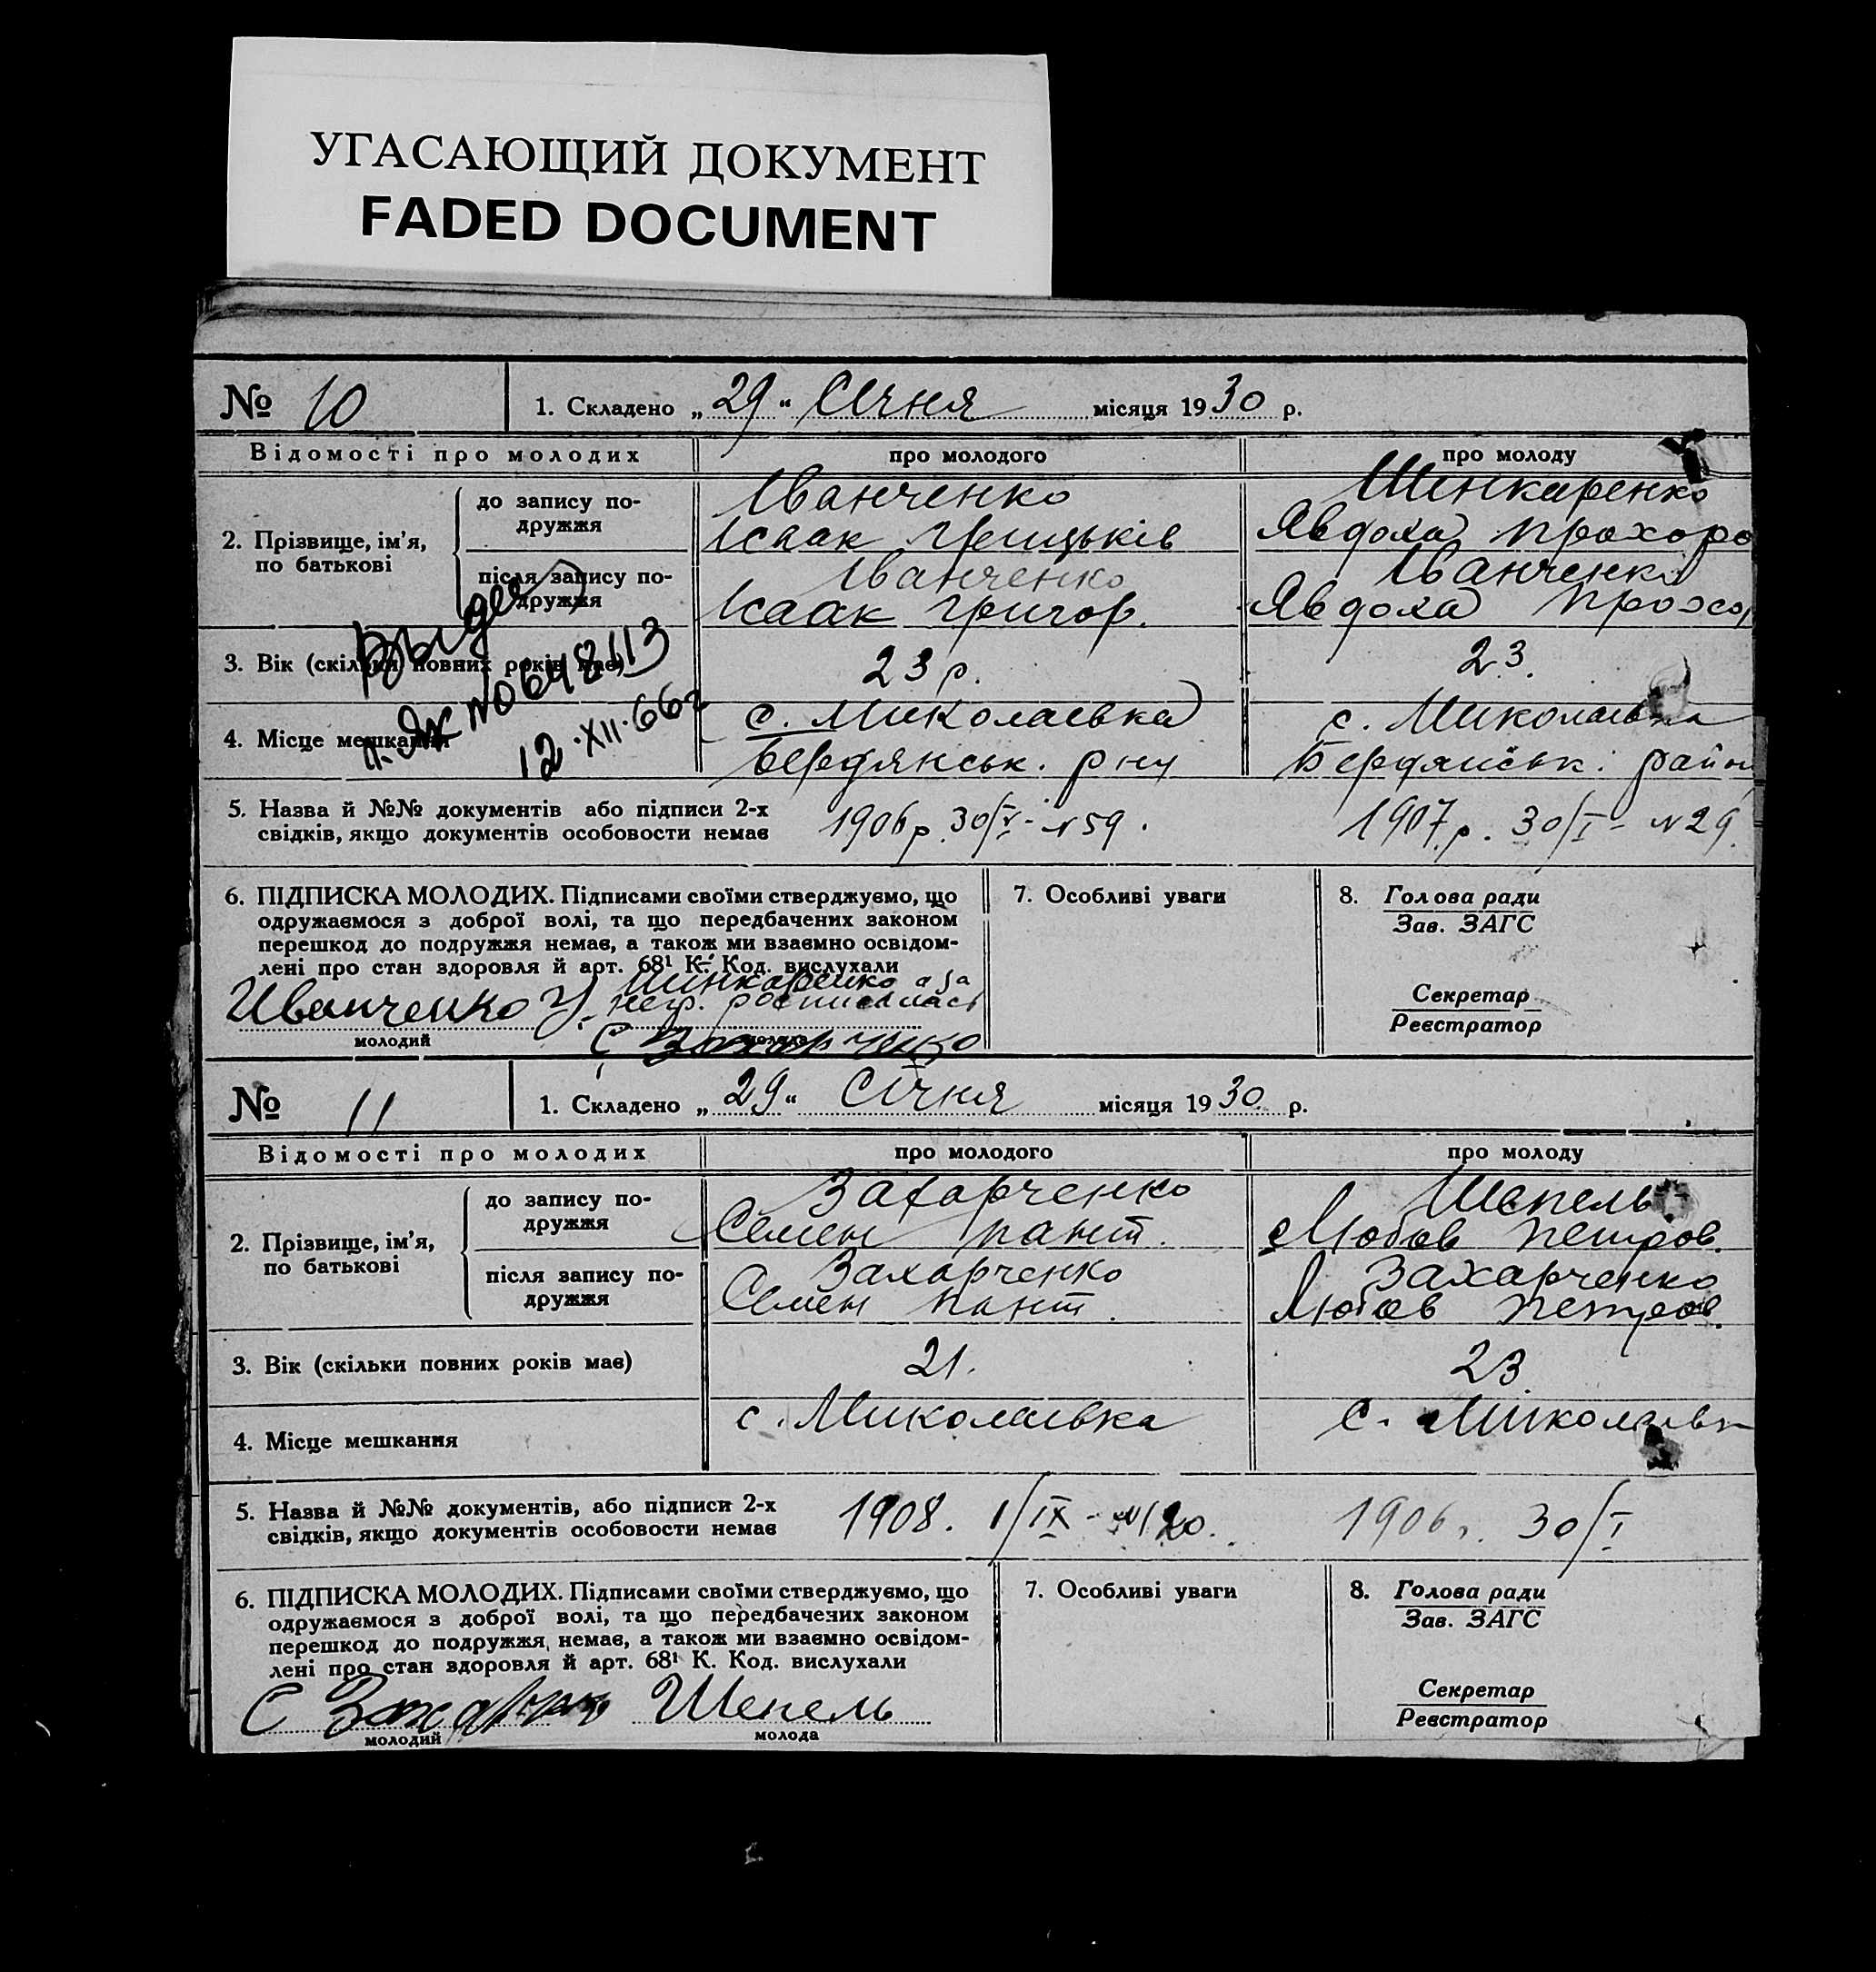 УГАСАЮЩИЙ ДОКУМЕНТ
FADED DOCUMENT
№ 10 1. Складено „29“ Січня місяця 1930 р.
Відомості про молодих про молодого про молоду
2. Прізвище, ім’я, по батькові
до запису по-
дружжя
Іванченко
Ісаак Грицьків
Шинкаренко
Явдоха Прохоро
після запису по-
дружжя
Іванченко
Ісаак Григор.
Іванченко
Явдоха Прохор
3. Вік (скільки повних років має) 23 р. 23.
4. Місце мешкання
с. Миколаевка
Бердянськ. р-ну
с. Миколаевка
Бердянськ. район
№ 648113
12.XII.66г
5. Назва й №№ документів або підписи 2-х
свідків, якщо документів особовости немає
1906 р. 30/V - N 59.
1907 р. 30/I - N 29.
6. ПІДПИСКА МОЛОДИХ. Підписами своїми стверджуємо, що
одружаємося з доброї волі, та що передбачених законом
перешкод до подружжя немає, а також ми взаємно освідом-
лені про стан здоровля й арт. 68¹ К. Код. вислухали
Шинкаренко а за
Иванченко У. неф. росписалась
С Захарченко
молодий молода
7. Особливі уваги
8. Голова ради
Зав. ЗАГС
Секретар
Реєстратор
№ 11 1. Складено „29“ Січня місяця 1930 р.
Відомості про молодих про молодого про молоду
2. Прізвище, ім’я,
по батькові
до запису по-
дружжя
Захарченко
Семен Пант.
Шепель
Любов Петров.
після запису по-
дружжя
Захарченко
Семен Пант.
Захарченко
Любов Петров.
3. Вік (скільки повних років має) 21. 23.
4. Місце мешкання с. Миколаевка с. Миколаевк
5. Назва й №№ документів, або підписи 2-х
свідків, якщо документів особовости немає
1908. 1/IX - N 120.
1906 р. 30/I
6. ПІДПИСКА МОЛОДИХ. Підписами своїми стверджуємо, що
одружаємося з доброї волі, та що передбачених законом
перешкод до подружжя немає, а також ми взаємно освідом-
лені про стан здоровля й арт. 68¹ К. Код. вислухали
С Захарченко Шепель
молодий молода
7. Особливі уваги
8. Голова ради
Зав. ЗАГС
Секретар
Реєстратор